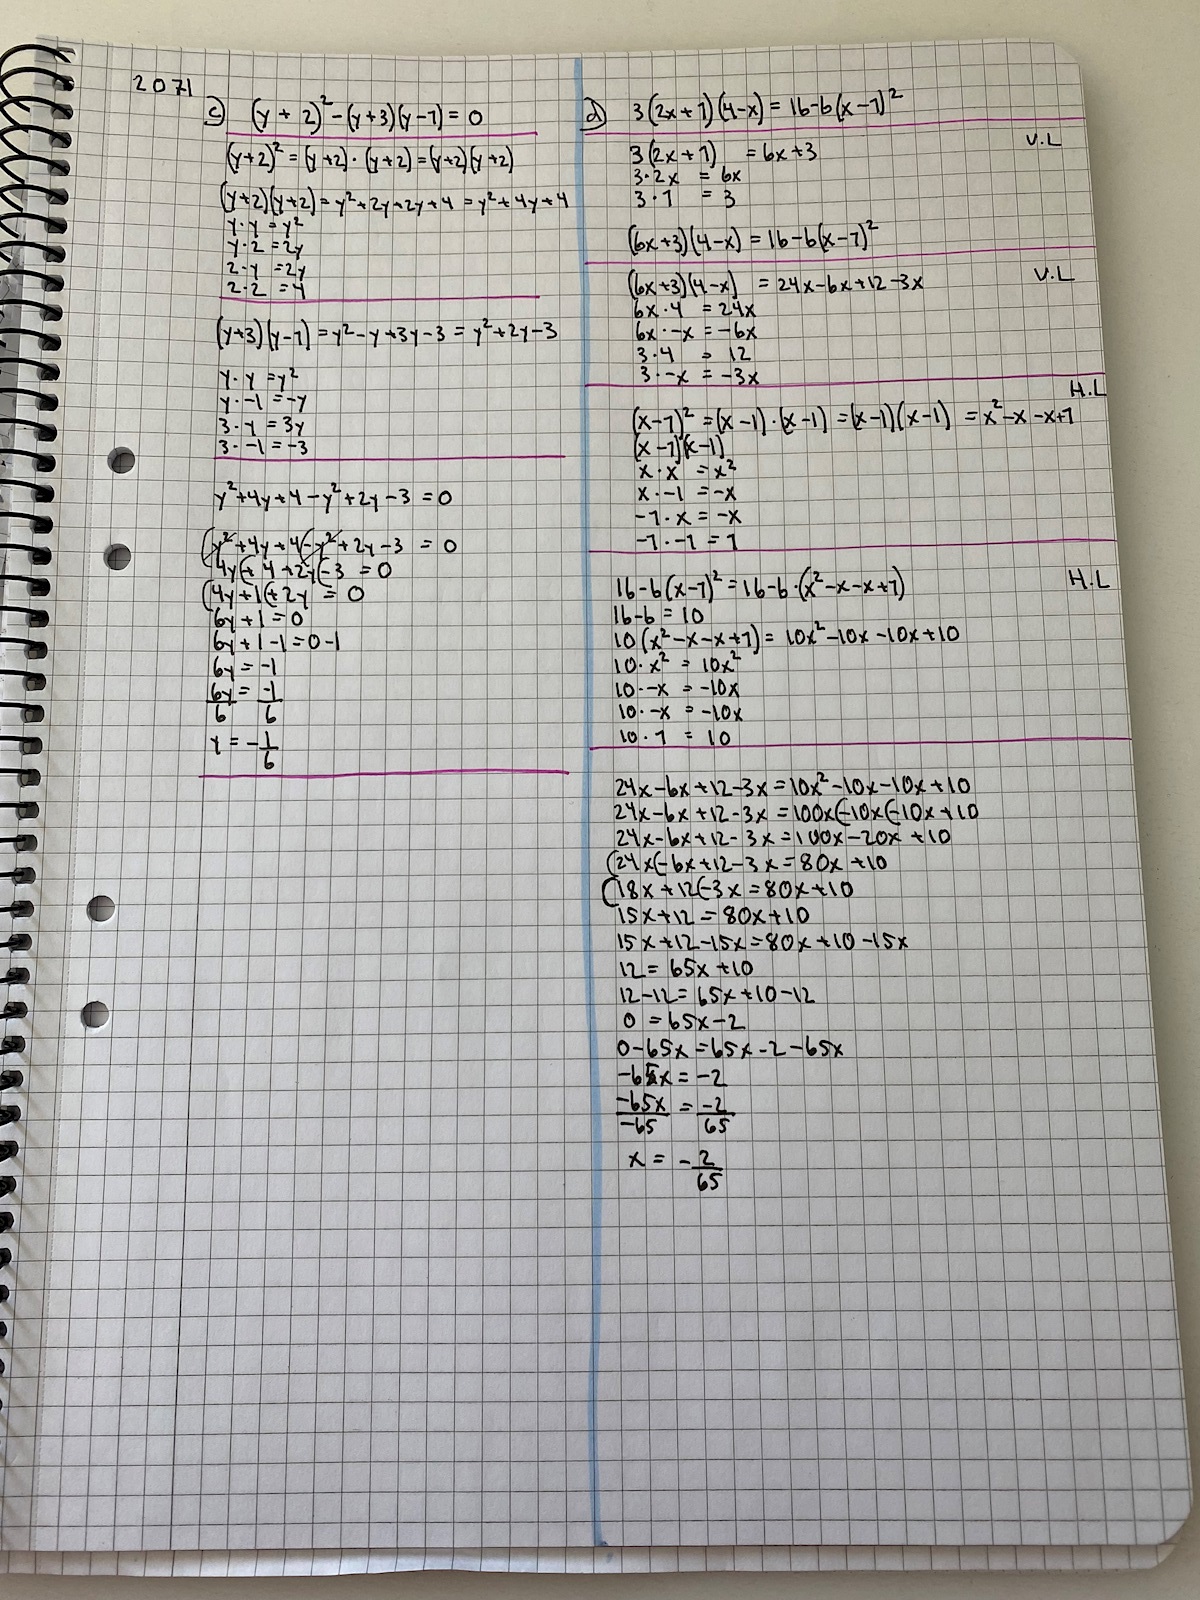 2071
c) (y + 2)² - (y+3)(y-1) = 0
(y+2)² = (y+2)·(y+2) = (y+2)(y+2)
(y+2)(y+2) = y²+2y+2y+4 = y²+4y+4
y·y = y²
y·2 = 2y
2·y = 2y
2·2 = 4
(y+3)(y-1) = y²-y+3y-3 = y²+2y-3
y·y = y²
y·-1 = -y
3·y = 3y
3·-1 = -3
y²+4y+4-y²+2y-3 = 0
(y²+4y+4(-y²+2y-3 = 0
4y(+4+2y(-3 = 0
(4y+1(+2y = 0
6y+1 = 0
6y+1-1 = 0-1
6y = -1
6y/6 = -1/6
y = -1/6
d) 3(2x+1)(4-x) = 16-6(x-1)²
V.L
3(2x+1) = 6x+3
3·2x = 6x
3·1 = 3
(6x+3)(4-x) = 16-6(x-1)²
V.L
(6x+3)(4-x) = 24x-6x+12-3x
6x·4 = 24x
6x·-x = -6x
3·4 = 12
3·-x = -3x
H.L
(x-1)² = (x-1)·(x-1) = (x-1)(x-1) = x²-x-x+1
(x-1)(x-1)
x·x = x²
x·-1 = -x
-1·x = -x
-1·-1 = 1
16-6(x-1)² = 16-6·(x²-x-x+1) H.L
16-6 = 10
10(x²-x-x+1) = 10x²-10x-10x+10
10·x² = 10x²
10·-x = -10x
10·-x = -10x
10·1 = 10
24x-6x+12-3x = 10x²-10x-10x+10
24x-6x+12-3x = 100x(-10x(-10x+10
24x-6x+12-3x = 100x-20x+10
(24x(-6x+12-3x = 80x+10
(18x+12(-3x = 80x+10
15x+12 = 80x+10
15x+12-15x = 80x+10-15x
12 = 65x+10
12-12 = 65x+10-12
0 = 65x-2
0-65x = 65x-2-65x
-65x = -2
-65x/-65 = -2/65
x = -2/65